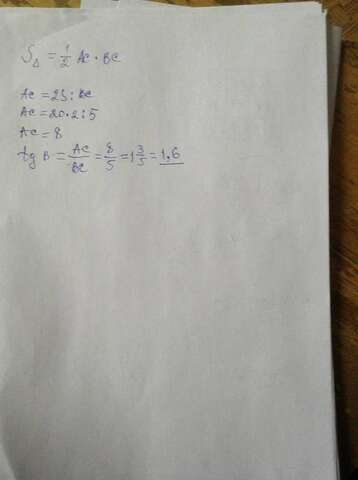 S△ = 1/2 AC · BC
AC = 2S : BC
AC = 20 · 2 : 5
AC = 8
tg B = AC/BC = 8/5 = 1 3/5 = 1,6